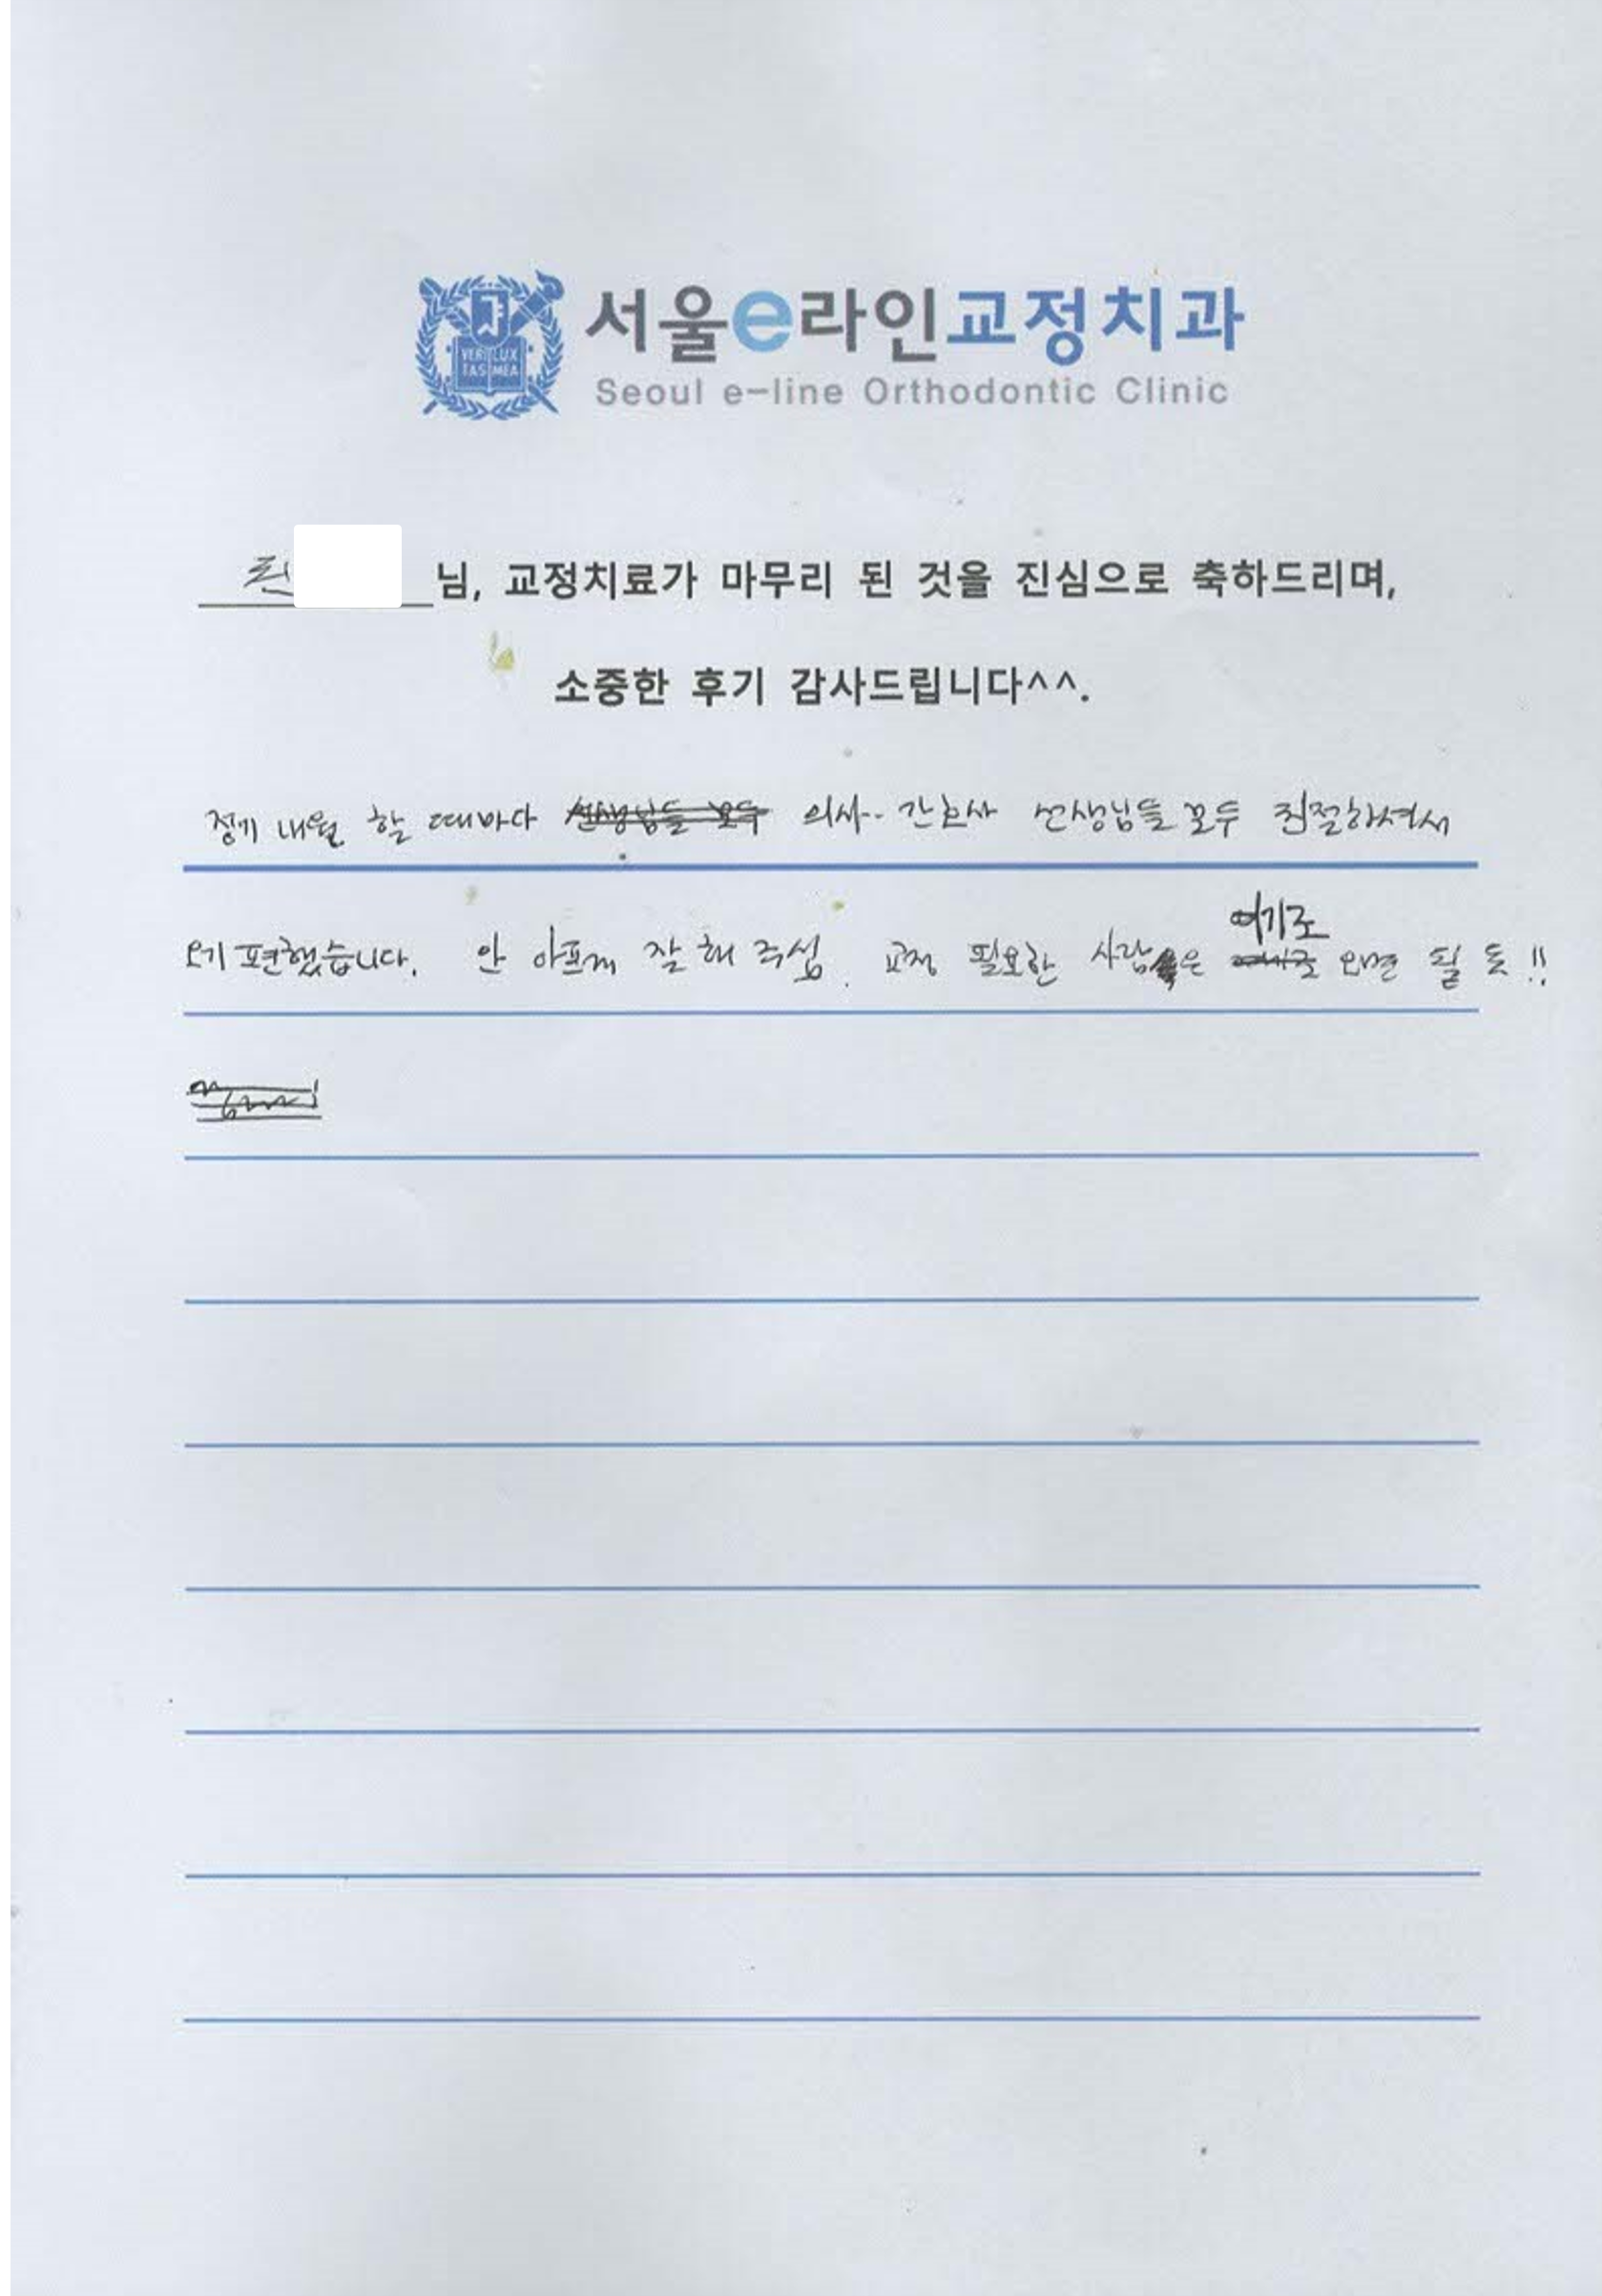 VERI LUX
TAS MEA
서울e라인교정치과
Seoul e-line Orthodontic Clinic
님, 교정치료가 마무리 된 것을 진심으로 축하드리며,
소중한 후기 감사드립니다^^.
정기 내원 할 때마다 선생님들 모두 의사·· 간호사 선생님들 모두 친절하셔서
여기로
오기 편했습니다. 안 아프게 잘 해 주심. 교정 필요한 사람은 오면 될 듯!!